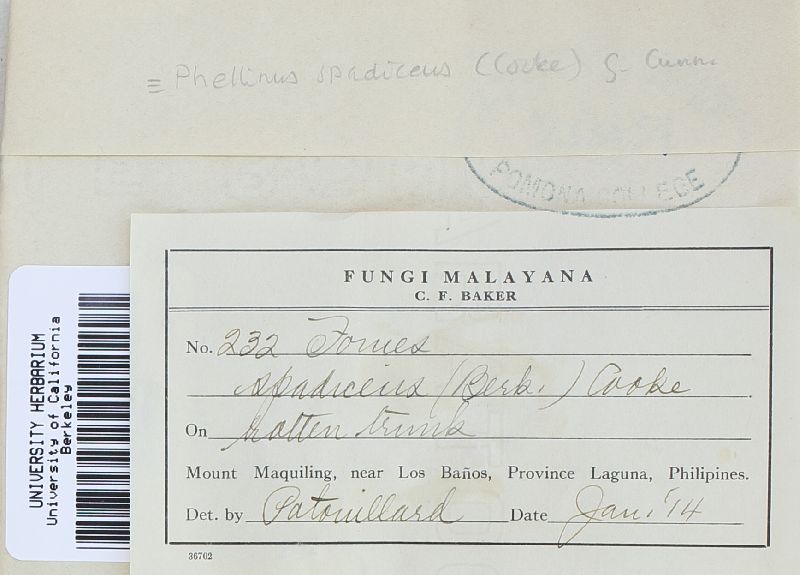 ≡ Phellinus spadiceus (Cooke) G. Cunn.
POMONA COLLEGE
FUNGI MALAYANA
C. F. BAKER
No. 232 Fomes
spadiceus (Berk.) Cooke
On rotten trunk
Mount Maquiling, near Los Baños, Province Laguna, Philipines.
Det. by Patouillard Date Jan. '14
36702
UNIVERSITY HERBARIUM
University of California
Berkeley